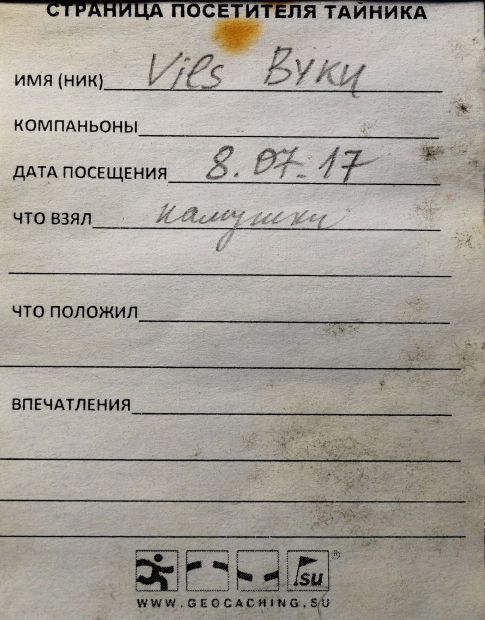 СТРАНИЦА ПОСЕТИТЕЛЯ ТАЙНИКА
ИМЯ (НИК) Vils Вуки
КОМПАНЬОНЫ
ДАТА ПОСЕЩЕНИЯ 8.07.17
ЧТО ВЗЯЛ камушки
ЧТО ПОЛОЖИЛ
ВПЕЧАТЛЕНИЯ
.su ®
WWW.GEOCACHING.SU